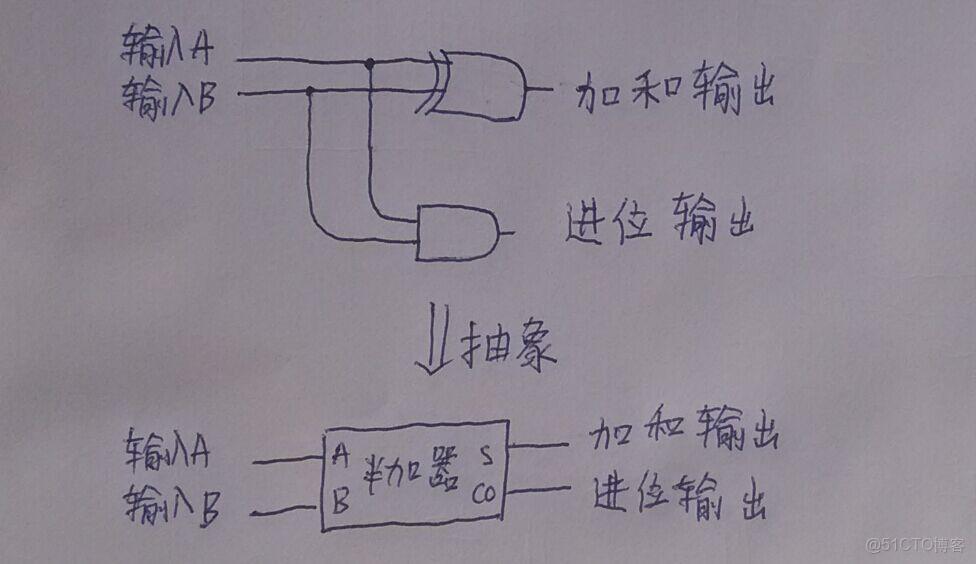 输入A
输入B
加和输出
进位输出
抽象
输入A
输入B
A
B
半加器
S
CO
加和输出
进位输出
@51CTO博客